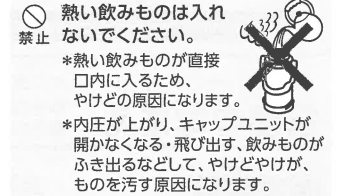 熱い飲みものは入れ
禁止 ないでください。
*熱い飲みものが直接
口内に入るため、
やけどの原因になります。
*内圧が上がり、キャップユニットが
開かなくなる・飛び出す、飲みものが
ふき出るなどして、やけどやけが、
ものを汚す原因になります。